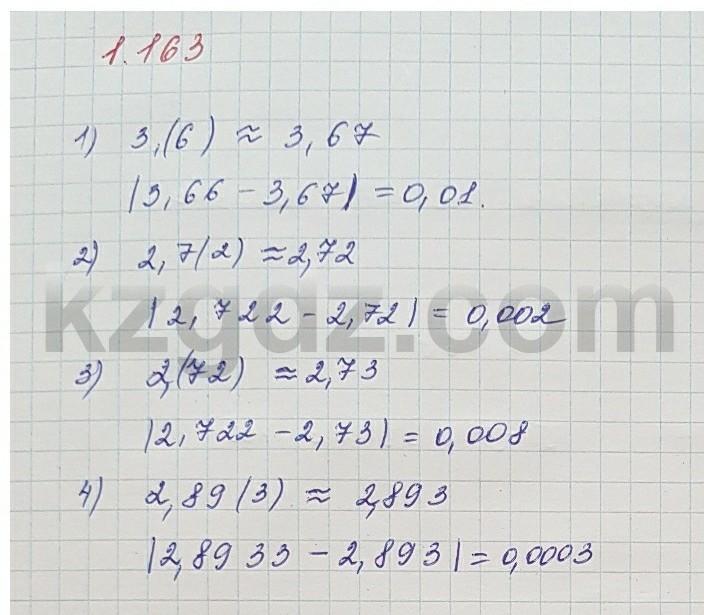 1.163
1) 3,(6) ≈ 3,67
|3,66 - 3,67| = 0,01.
2) 2,7(2) ≈ 2,72
|2,722 - 2,72| = 0,002
kzgdz.com
3) 2,(72) ≈ 2,73
|2,722 - 2,73| = 0,008
4) 2,89(3) ≈ 2,893
|2,8933 - 2,893| = 0,0003